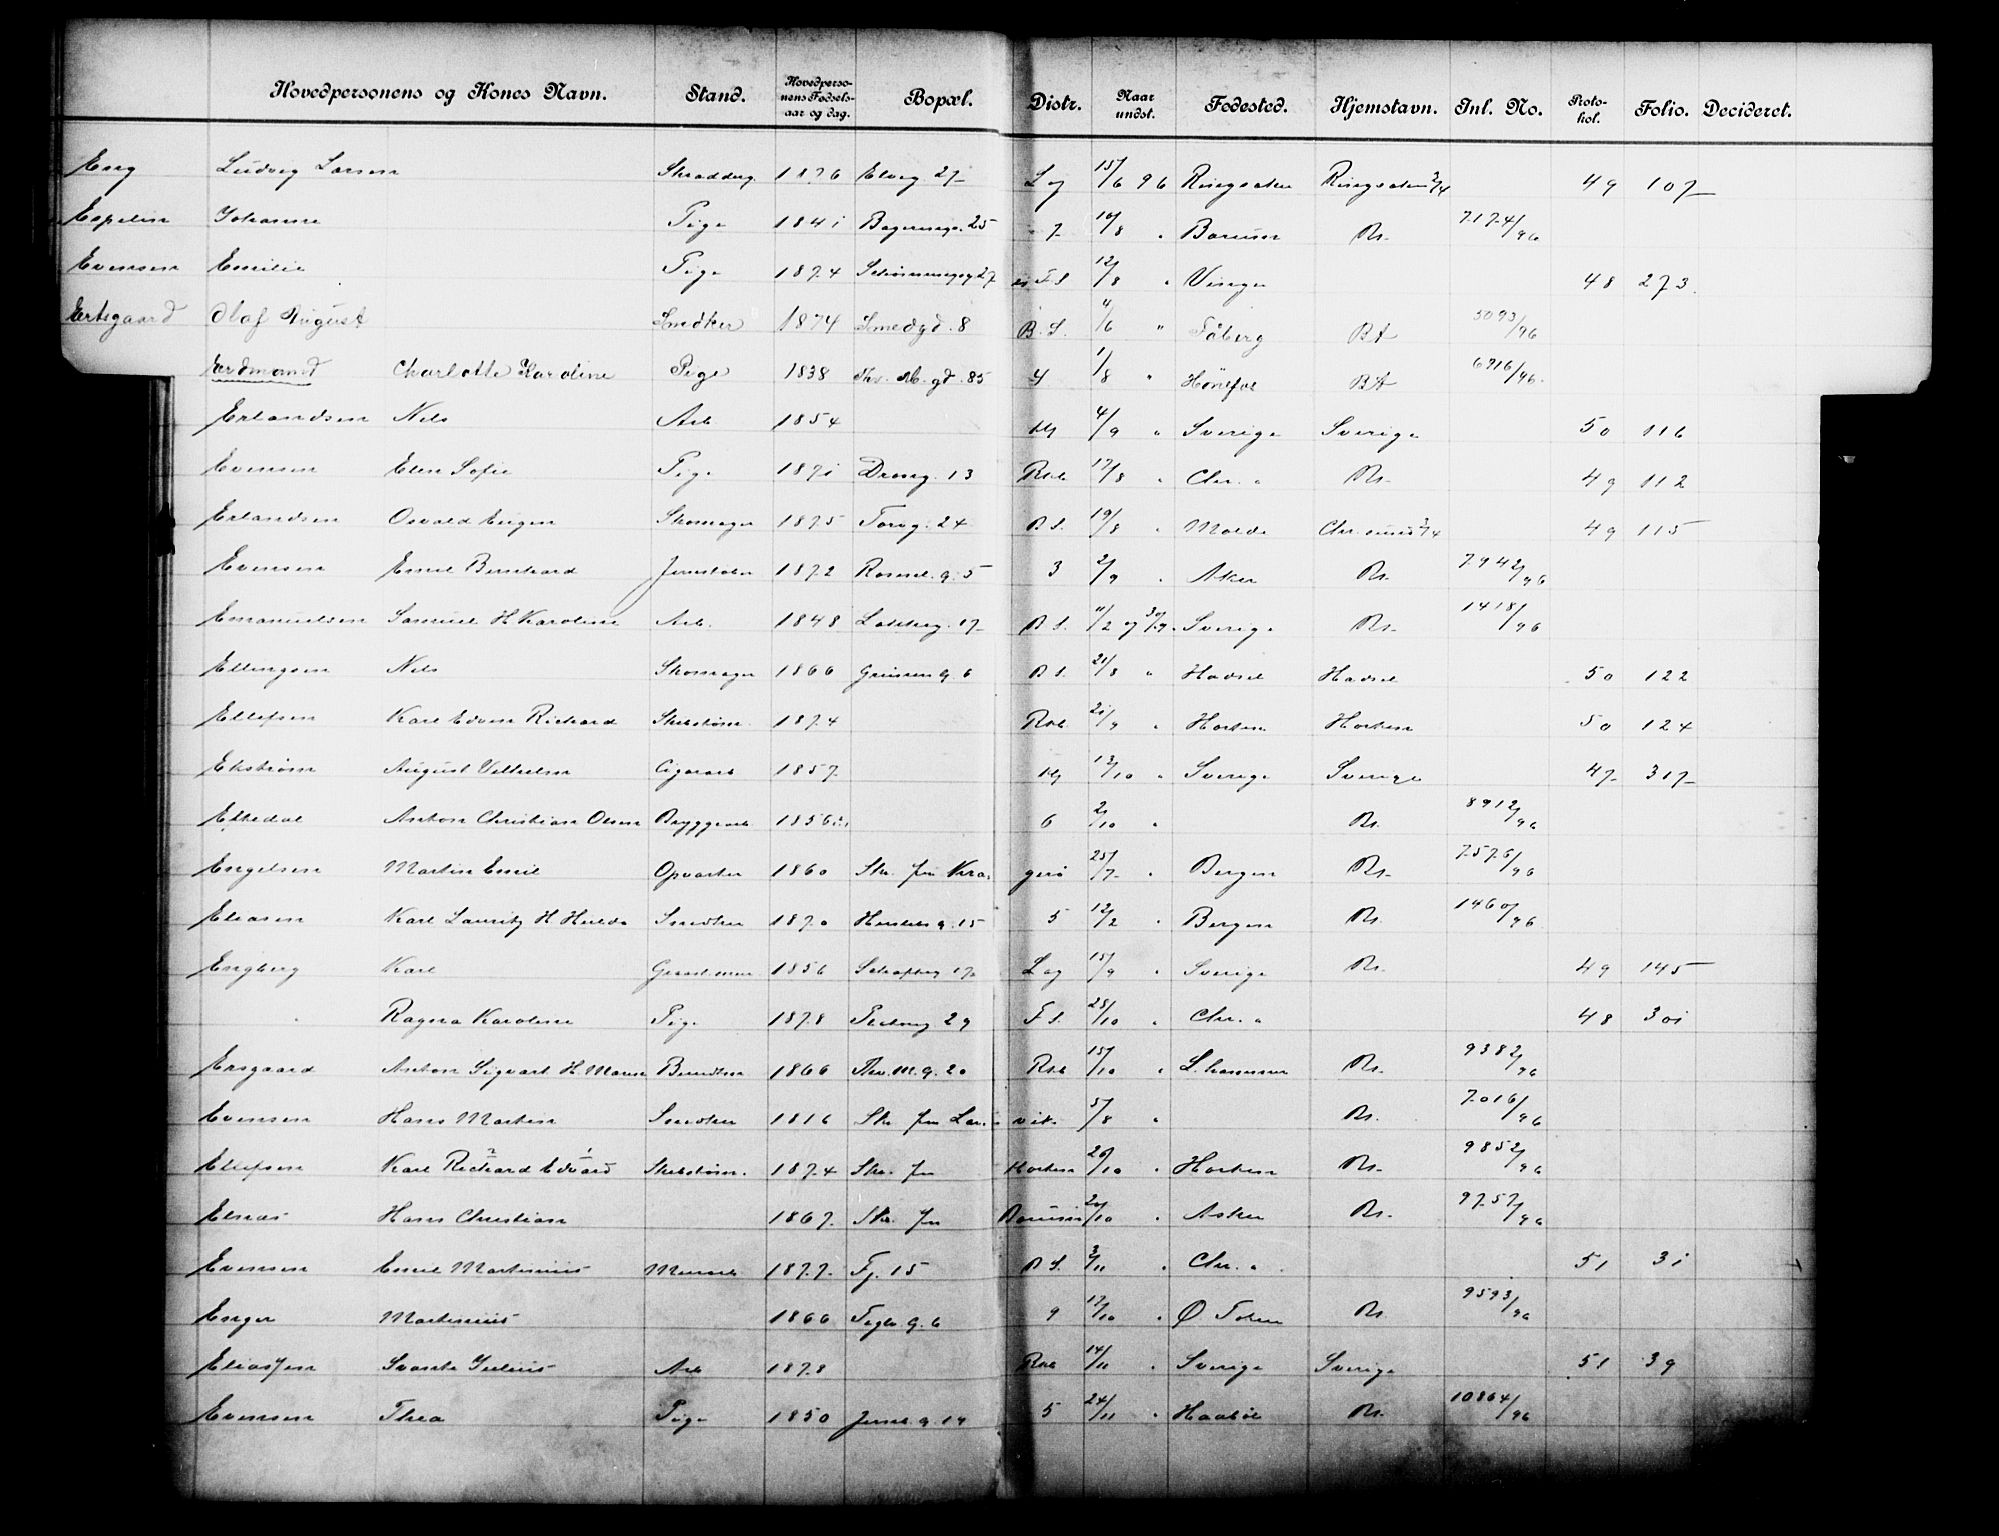 Hovedpersonens og Kones Navn. Stand. Hovedpersonens Fødselsaar og dag. Bopæl. Distr. Naar undst. Fødested. Hjemstavn. Inl. No. Protokol. Folio. Decideret.
Eng Ludvig Larsen 1876 Elveg 27 Lag 15/6 96 Ringsaker Ringsaker 49 107
Espelin Johanne Pige 1841 25 7 10/8 " Bærum Bt. 7174/96
Evensen Emilie Pige 1874 27 F.S. 12/8 " Vinger 48 273
Ertsgaard Olaf August Snedker 1874 Smedgd. 8 B.S. 4/6 " Fåberg Bt 5093/96
Erdmand Charlotte Karoline Pige 1838 Thv. M. gd. 85 4 1/8 " Hönefos Bt 6916/96.
Erlandsen Nils Arb. 1854 4/9 " Sverige Sverige 50 116
Evensen Elen Sofie Pige 1871 13 Rkb 17/8 " Chr.a Bt. 49 112
Erlandsen Osvald Eugen Skomager 1875 Torvg. 24 B.S. 19/8 " Molde Chr.sund 49 115
Evensen Emil Bernhard 1872 Rosenk. g. 5 3 2/9 " Aker Bt. 7942/96
Emanuelsen Samuel H Karoline Arb. 1848 Lakkeg. 17 B.S. 11/2 og 30/9 " Sverige Bt. 1418/96
Ellingsen Nils Skomager 1866 6 B.S. 21/8 " Hadsel Hadsel 50 122
Ellefsen Karl Edvin Richard Skibstøm. 1874 Rkb. 21/9 " Horten Horten 50 124
Ekstrøm August Vilhelm Cigararb 1857 13/10 " Sverige Sverige 47 317
Anton Christian Olsen Bryggearb. 1856 6 2/10 " Bt. 8912/96
Engelsen Martin Emil Opvarter 1860 Skr. fra Kragerö 25/7 " Bergen Bt. 7576/96
Eliasen Karl Lauritz H Hulda Snedker 1870 Herslebs g. 15 5 12/2 " Bergen Bt. 1460/96
Engberg Karl 1856 17 Lag 15/9 " Sverige Bt. 49 145
" Ragna Karoline Pige 1878 29 F.S. 28/10 " Chr.a 48 301
Ersgaard Anton Sigvart H. Maren 1866 Thv. M. g. 20 Rkb 15/10 " Bt. 9382/96
Evensen Hans Martin Snedker 1816 Skr. fra Larvik 5/8 " Bt. 7016/96
Ellefsen Karl Richard Edvard Skibstøm. 1874 Skr. fra Horten 26/10 " Horten Bt. 9852/96
Elnæs Hans Christian 1867 Skr. fra Bærum 20/10 " Asker Bt. 9757/96
Evensen Emil Martinius Murarb. 1877 Fj. 15 B.S. 3/11 " Chr.a 51 31
Enger Martinius 1866 Teglv. g. 6 9 17/10 " Ø Toten Bt. 9593/96
Eliassen Svante Julius Arb 1878 Rkb 14/11 " Sverige Sverige 51 39
Evensen Thea Pige 1850 g 14 5 24/11 " Haaböl Bt. 10864/96